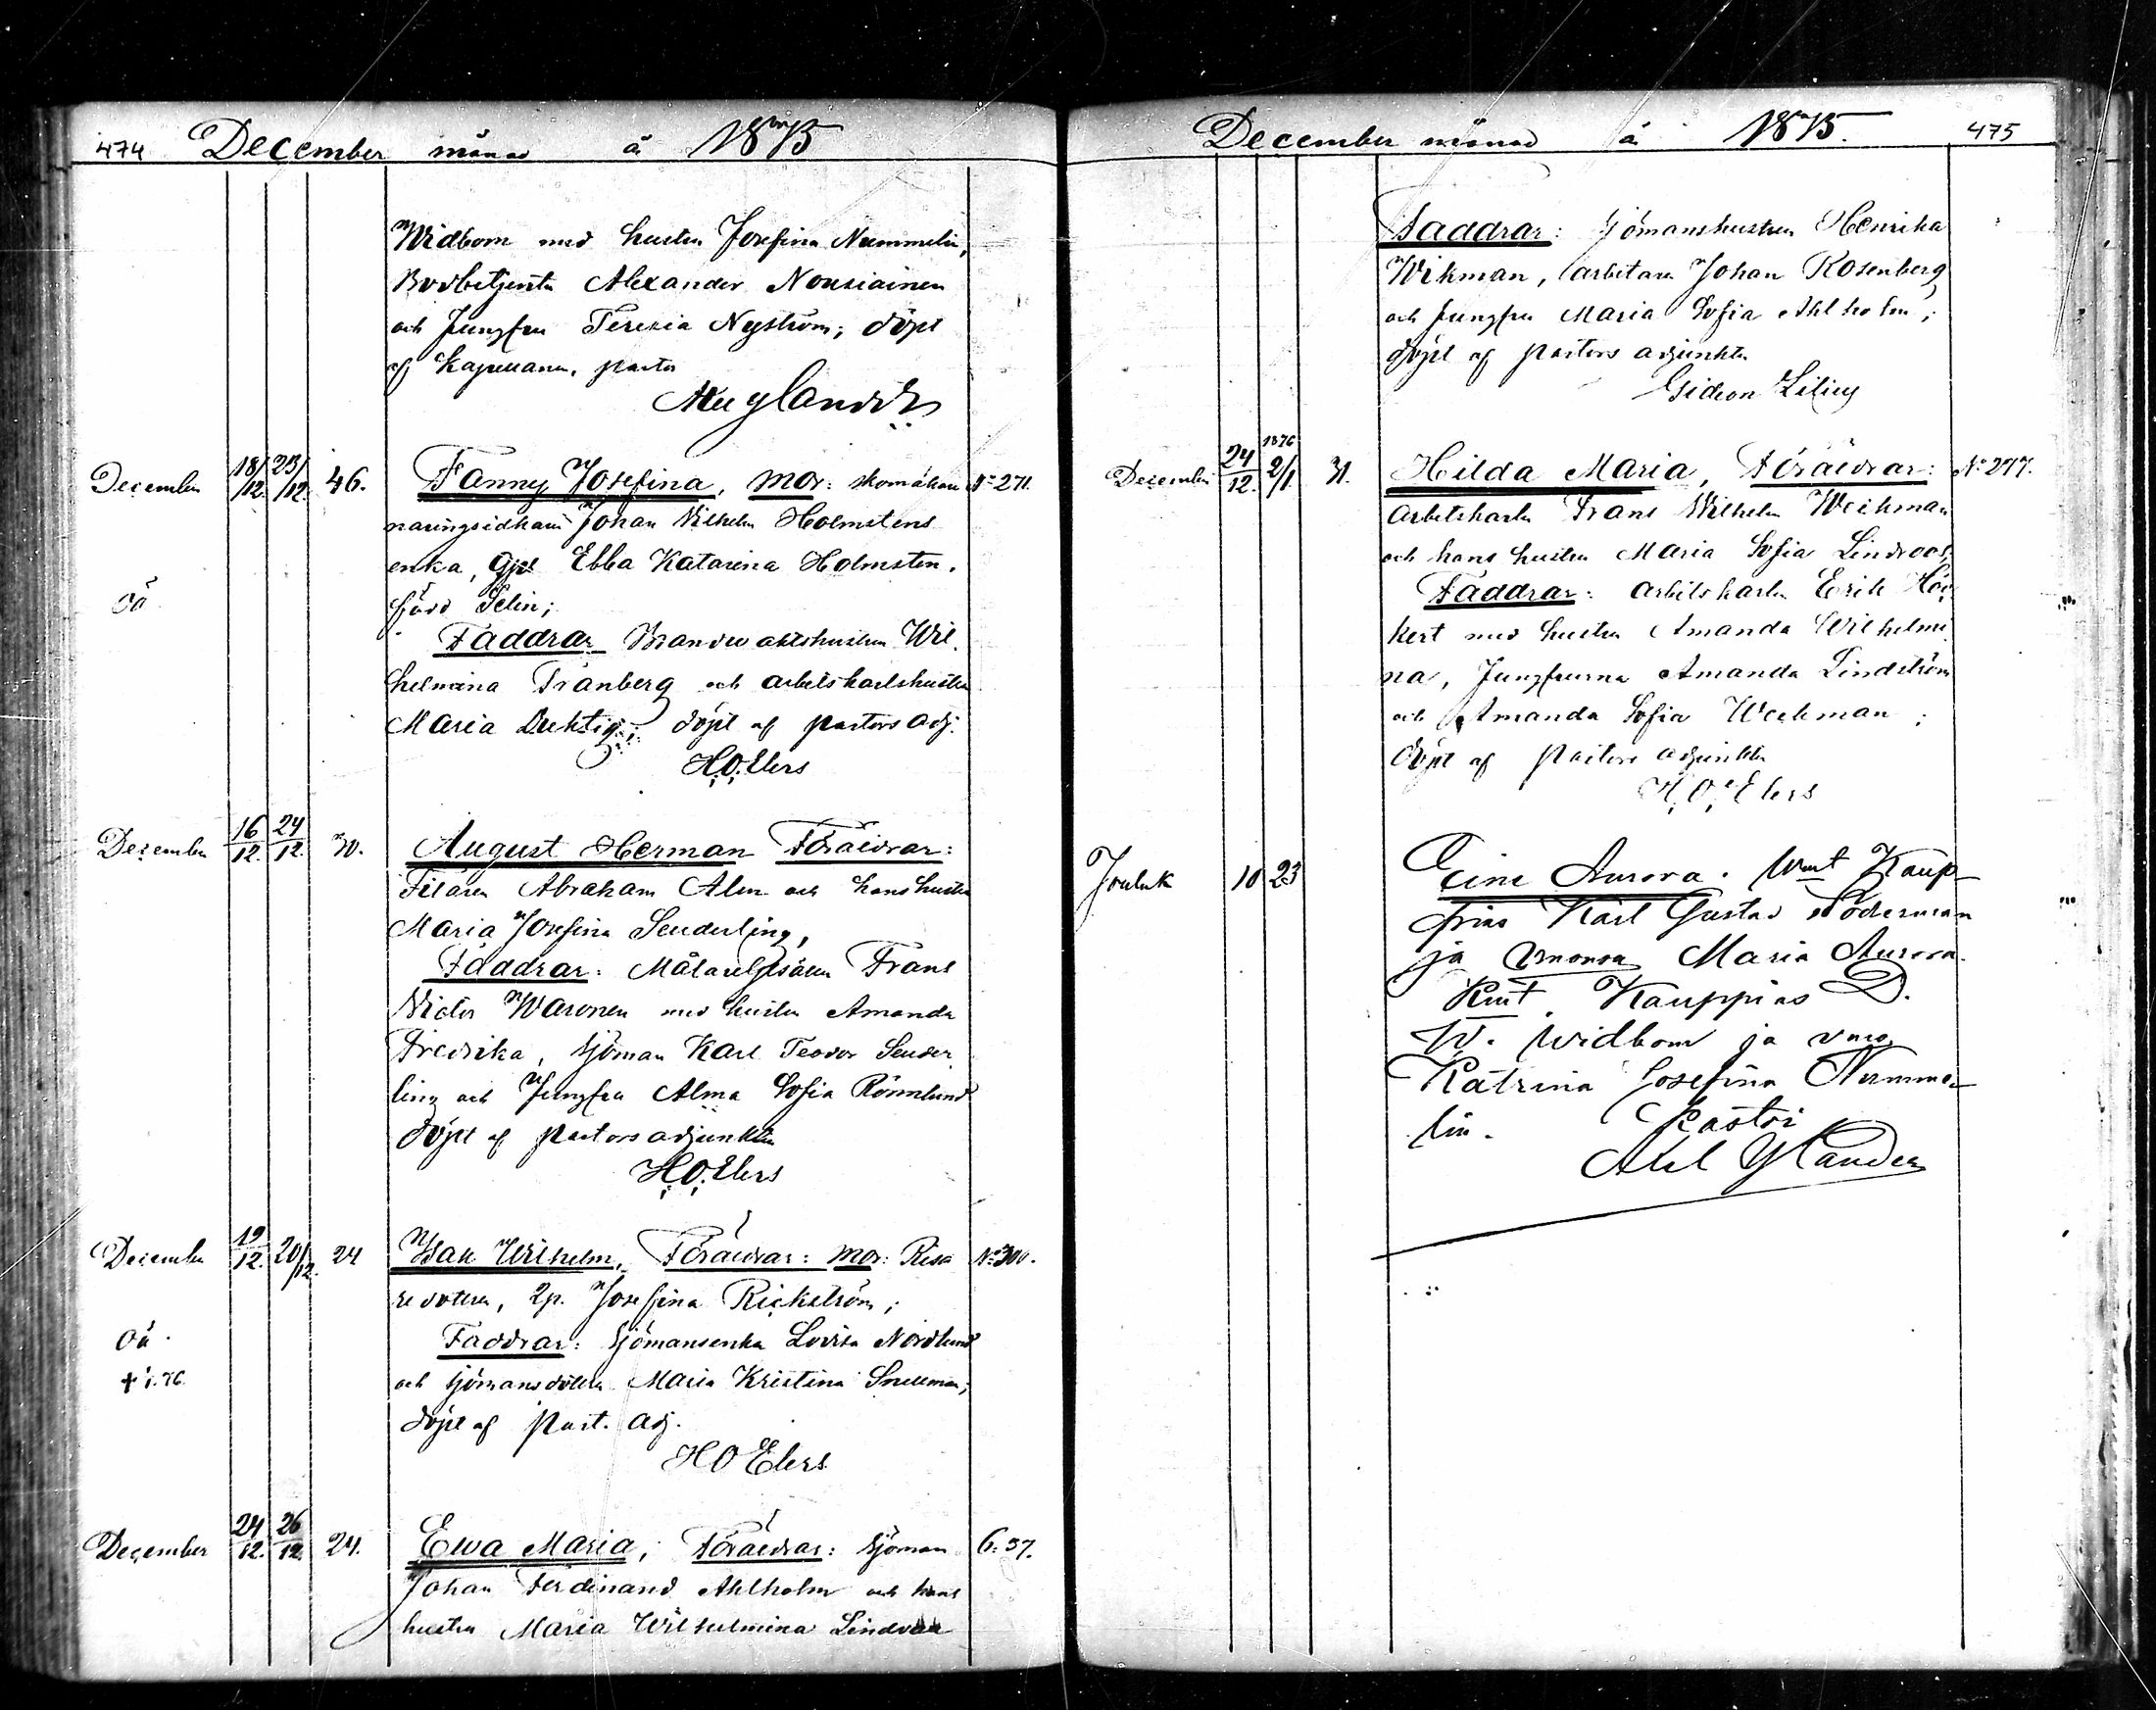 474 December månad å 1875
Widbom med hustru Josefina Nummelin,
Bodbetjenten Alexander Nousiainen
och Jungfru Teresia Nyström; döpt
af Kapellanen, pastor
Ax Ylander
December 18/12. 23/12. 46. Fanny Josefina, mor: skomakare No 271.
näringsidkaren Johan Wilhelm Holmstens
enka, Gjs Ebba Katarina Holmsten,
född Selin;
oä
Faddrar Brandvaktshustrun Wil-
helmina Tranberg och arbetskarlshustru
Maria Duktig; döpt af pastors adj.
H.O. Elers
December 16/12. 24/12. 30. August Herman Föräldrar:
Filaren Abraham Alm och hans hustru
Maria Josefina Senderling,
Faddrar: Målaregesällen Frans
Victor Waronen med hustru Amanda
Fredrika, Sjöman Karl Teodor Sender-
ling och Jungfru Alma Sofia Rönnlund
döpt af pastorsadjunkten
H.O. Elers
December 19/12. 20/12. 24 Isak Wilhelm, Föräldrar: mor: No 300.
dottren, Josefina Rickström;
oä.
Faddrar: Sjömansenka Lovisa Nordlund
+ 1.76.
och sjömansdottern Maria Kristina Snellman;
döpt af past. adj.
H O Elers
December 24/12. 26/12. 24. Ewa Maria; Föräldrar: Sjöman 6:37.
Johan Ferdinand Ahlholm och hans
hustru Maria Wilhelmina
December månad å 1875. 475
Faddrar: Sjömanshustrun Henrika
Wikman, arbetaren Johan Rosenberg
och Jungfru Maria Sofia Ahlholm;
döpt af pastors adjunkten
Gideon Lilius
December 24/12. 1876 2/1. 31. Hilda Maria, Föräldrar: No 277.
Arbetskarlen Frans Wilhelm Weckman
och hans hustru Maria Sofia Lindroos;
Faddrar: Arbetskarlen Erik Höc-
kert med hustru Amanda Wilhelmi-
na, Jungfrurna Amanda Lindström
och Amanda Sofia Weckman;
döpt af pastors adjunkten
H. O. Elers
Jouluk 10 23 Eine Aurora. Wmt Kaup-
pias Karl Gustav Söderman
ja vmonsa Maria Aurora.
Kmt. Kauppias D.
W. Widbom ja vmo
Katrina Josefina Numme-
lin. Pastori
Axel Ylander